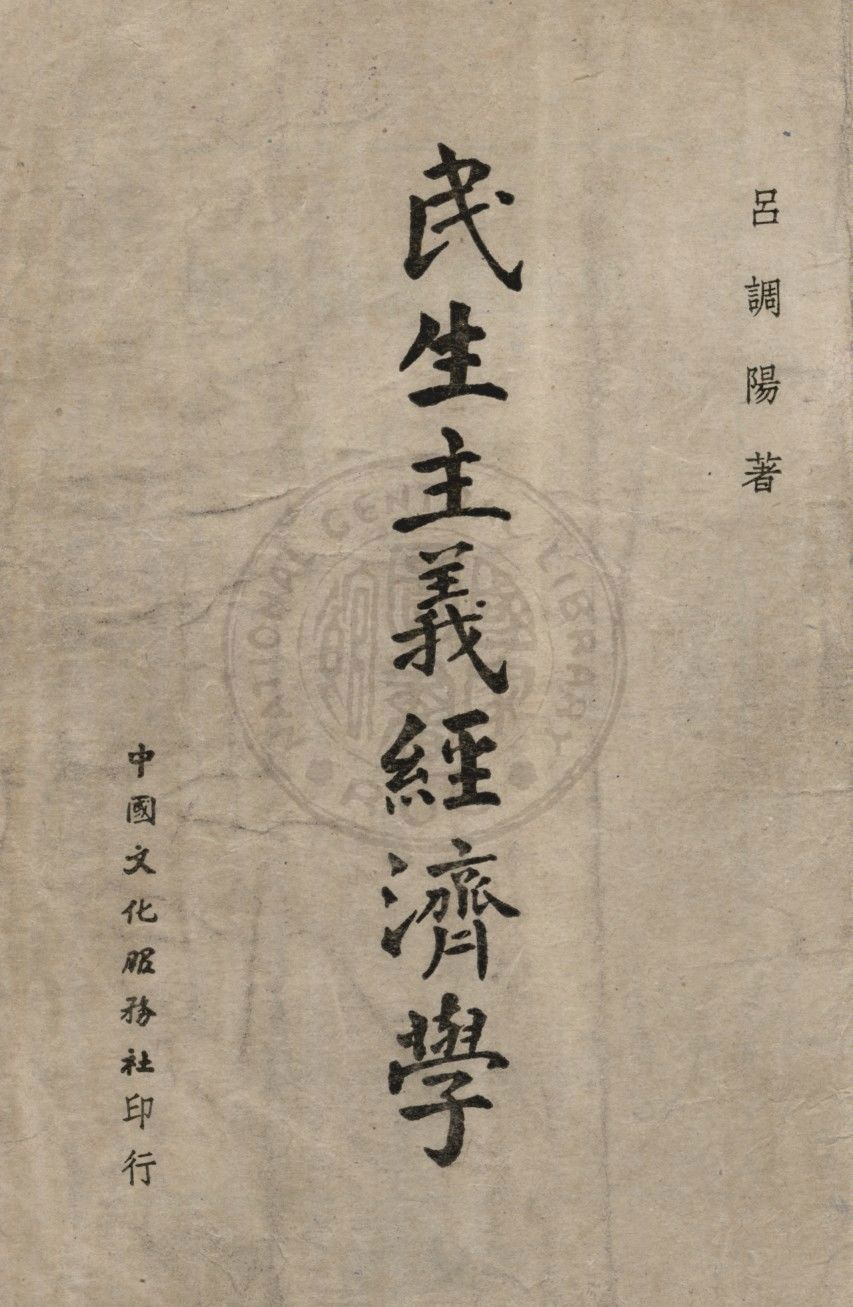 呂調陽著
民生主義經濟學
中國文化服務社印行
NATIONAL CENTRAL LIBRARY